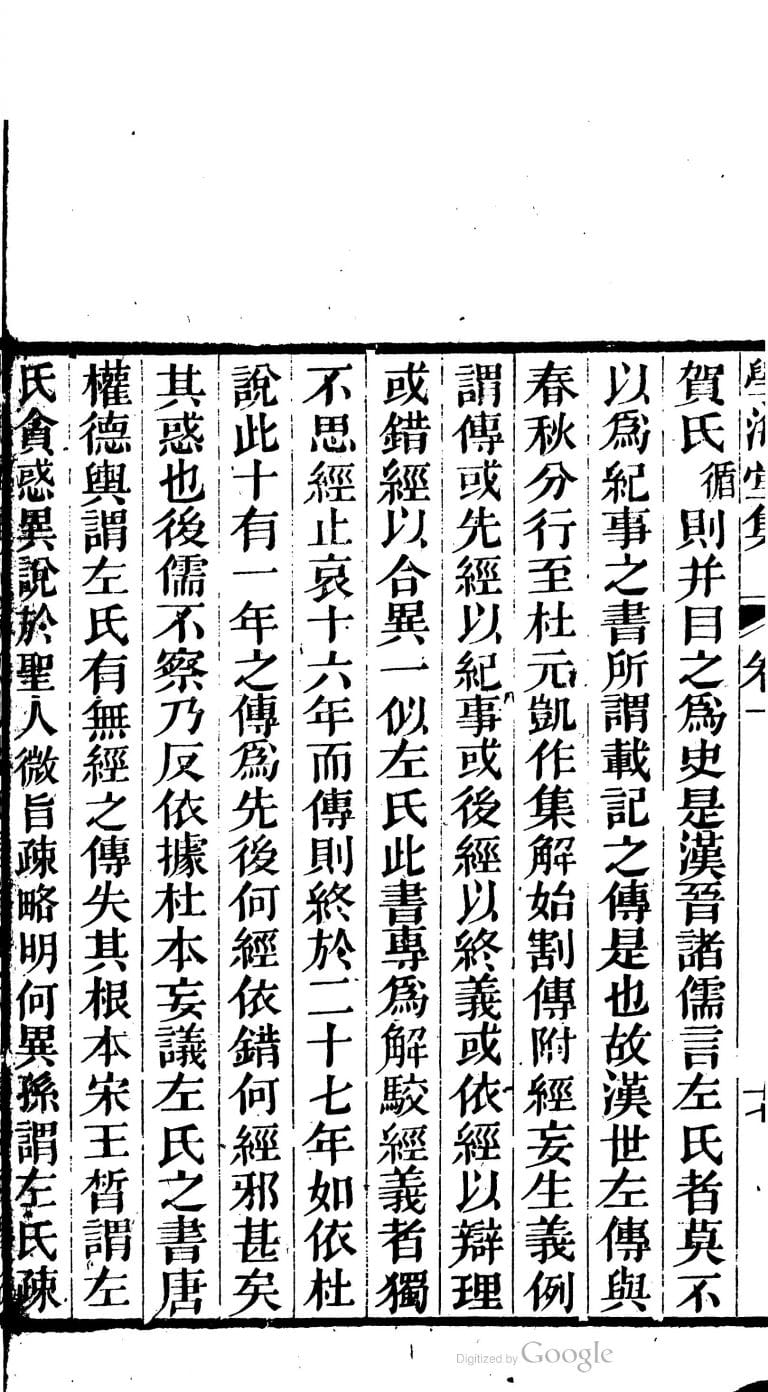 學海堂集 卷十
賀氏循則并目之爲史是漢晉諸儒言左氏者莫不
以爲紀事之書所謂載記之傳是也故漢世左傳與
春秋分行至杜元凱作集解始割傳附經妄生義例
謂傳或先經以紀事或後經以終義或依經以辯理
或錯經以合異一似左氏此書專爲解駮經義者獨
不思經止哀十六年而傳則終於二十七年如依杜
說此十有一年之傳爲先後何經依錯何經邪甚矣
其惑也後儒不察乃反依據杜本妄議左氏之書唐
權德輿謂左氏有無經之傳失其根本宋王晳謂左
氏貪惑異說於聖人微旨疎略明何異孫謂左氏疎
Digitized by Google